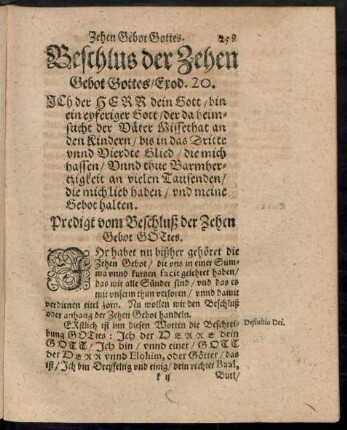 Zehen Gebot Gottes. 258
Beschlus der Zehen
Gebot Gottes/Exod. 20.
ICh der HERR dein Gott/bin
ein eyferiger Gott/der da heim-
sucht der Väter Missethat an
den Kindern/bis in das Dritte
vnnd Vierdte Glied/die mich
hassen/Vnnd thue Barmher-
tzigkeit an vielen Tausenden/
die mich lieb haben/vnd meine
Gebot halten.
Predigt vom Beschluß der Zehen
Gebot GOttes.
IHr habet nu bißher gehöret die
Zehen Gebot/die vns in einer Sum-
ma vnnd kurtzen facit gelehret haben/
das wir alle Sünder sind/vnd das es
mit vnserm thun verloren/vnnd damit
verdienen eitel zorn. Nu wollen wir den Beschluß
oder anhang der Zehen Gebot handeln.
ERstlich ist inn diesen Worten die Beschrei-
bung GOttes: Ich der HERRE dein
GOTT/Ich bin/vnnd einer/GOTT
der HERR vnnd Elohim, oder Götter/das
ist/Ich bin Dreyfeltig vnd einig/dein rechter Baal,
k ij Buel/
Definitio Dei.